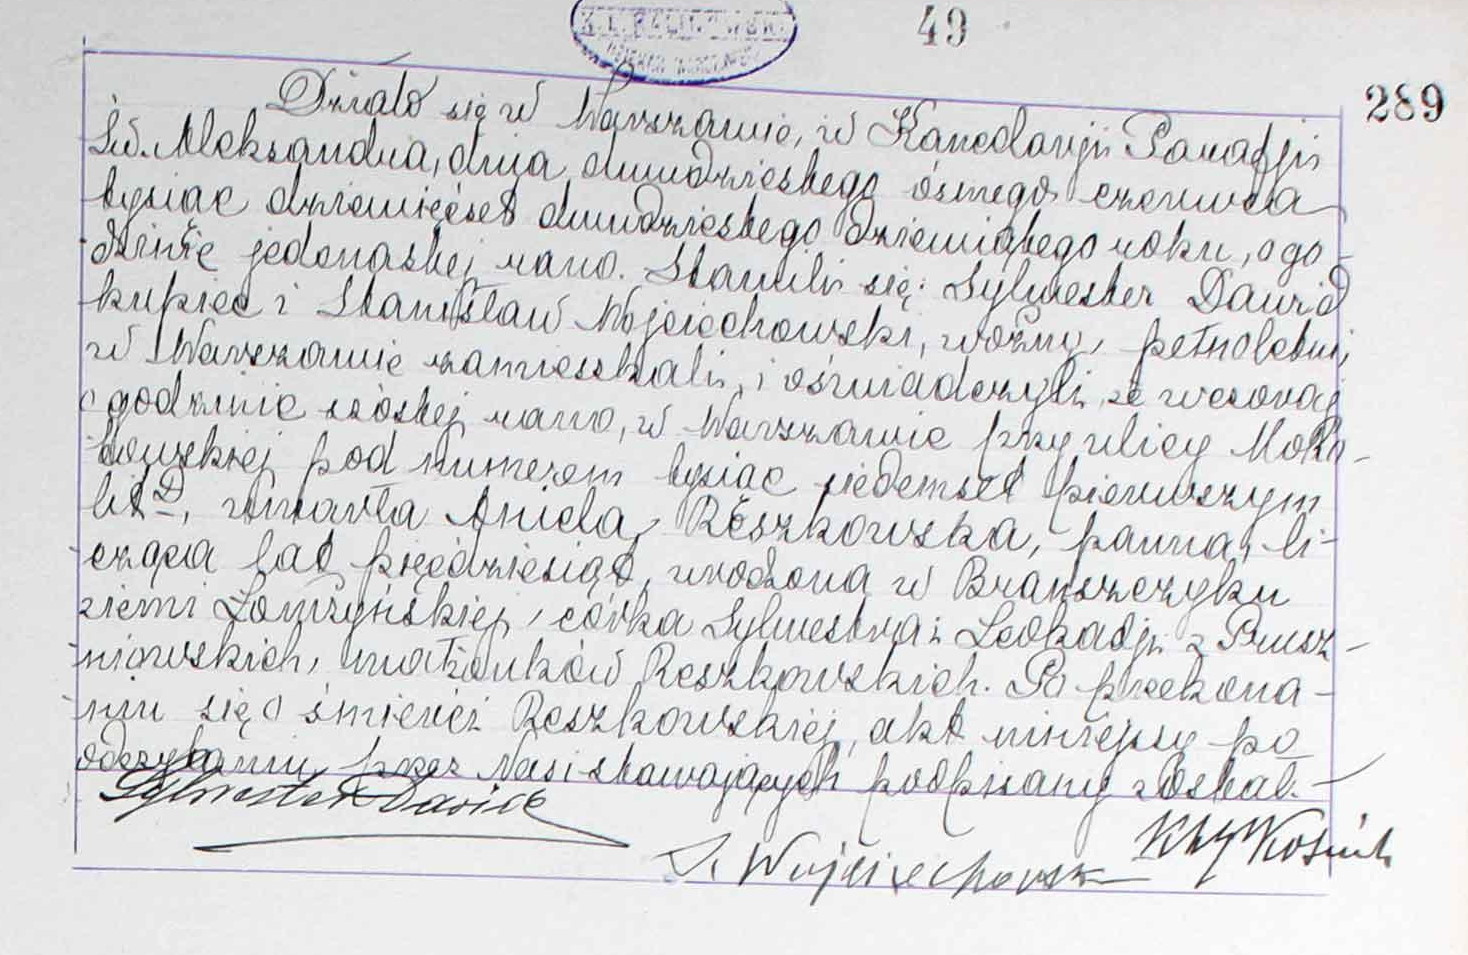 49
289
Działo się w Warszawie, w Kancelarji Parafji
Św. Aleksandra, dnia dwudziestego ósmego czerwca
tysiąc dziewięćset dwudziestego dziewiątego roku, o go-
dzinie jedenastej rano. Stawili się: Sylwester Dawid
kupiec i Stanisław Wojciechowski, woźny, pełnoletni,
w Warszawie zamieszkali, i oświadczyli, że wczoraj
o godzinie szóstej rano, w Warszawie przy ulicy Moko-
towskiej pod numerem tysiąc siedemset pierwszym
lit D, umarła Aniela Reszkowska, panna, li-
cząca lat pięćdziesiąt, urodzona w Brańszczyku
ziemi Łomżyńskiej, córka Sylwestra i Leokadji z Prusz-
niowskich, małżonków Reszkowskich. Po przekona-
niu się o śmierci Reszkowskiej, akt niniejszy po
odczytaniu, przez Nas i stawających podpisany został.
Sylwester Dawid
S. Wojciechowski